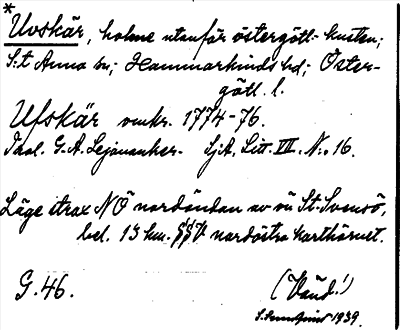 *
Uvskär, holme utanför östergötl. kusten;
S:t Anna sn; Hammarkinds hd; Öster-
götl. l.
Ufskär omkr. 1774-76.
Sjk. G.A. Sjt. Litt. VII. N:o 16.
Läge strax NÖ nordändan av ön St. Svensö,
bel. 13 km. SSV nordöstra karthörnet.
G.46.
(Vänd!)
1939.